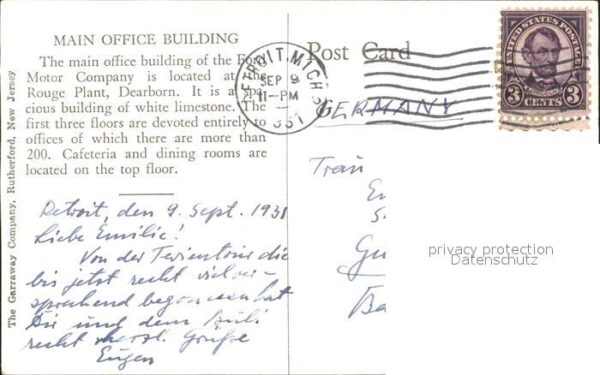 MAIN OFFICE BUILDING
The main office building of the Ford
Motor Company is located at the
Rouge Plant, Dearborn. It is a spa-
cious building of white limestone. The
first three floors are devoted entirely to
offices of which there are more than
200. Cafeteria and dining rooms are
located on the top floor.
The Garraway Company, Rutherford, New Jersey
Post Card
DETROIT, MICH.
SEP 9
11-PM
1931
UNITED STATES POSTAGE
LINCOLN
3 CENTS 3
GERMANY
Detroit, den 9. Sept. 1931
Liebe Emilie!
Von der Ferientour die
bis jetzt recht vielver-
sprechend begonnen hat
Dir und dem
recht herzl. Grüße
Eugen
privacy protection
Datenschutz